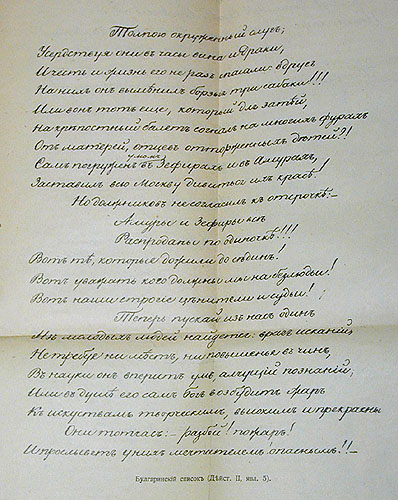 Толпою окруженный слугъ;
Усердствуя они въ часы вина и драки,
И честь и жизнь его не разъ спасали: вдругъ
На нихъ онъ вымѣнилъ борзыя три собаки!!!
Или вонъ тотъ еще, который для затѣй,
На крѣпостный балетъ согналъ на многихъ фурахъ
Отъ матерей, отцевъ отторженныхъ дѣтей?!
Самъ погруженъ умомъ въ Зефирахъ и въ Амурахъ,
Заставилъ всю Москву дивиться ихъ красѣ!
Но должниковъ не согласилъ къ отсрочкѣ:—
Амуры и Зефиры всѣ
Распроданы по одиночкѣ!!!
Вотъ тѣ, которые дожили до сѣдинъ!
Вотъ уважать кого должны мы на безлюдьи!
Вотъ наши строгіе цѣнители и судьи!
Теперь пускай изъ насъ одинъ
Изъ молодыхъ людей найдется: врагъ исканій,
Не требуя ни мѣстъ, ни повышенья въ чинъ,
Въ науки онъ вперитъ умъ, алчущій познаній;
Или въ душѣ его самъ богъ возбудитъ жаръ
Къ искуствамъ творческимъ, высокимъ и прекраснымъ
Они тотчасъ:— разбой! пожаръ!
И прослыветъ у нихъ мечтателемъ, опаснымъ!!—
Булгаринскій списокъ (Дѣйст. II, явл. 5).